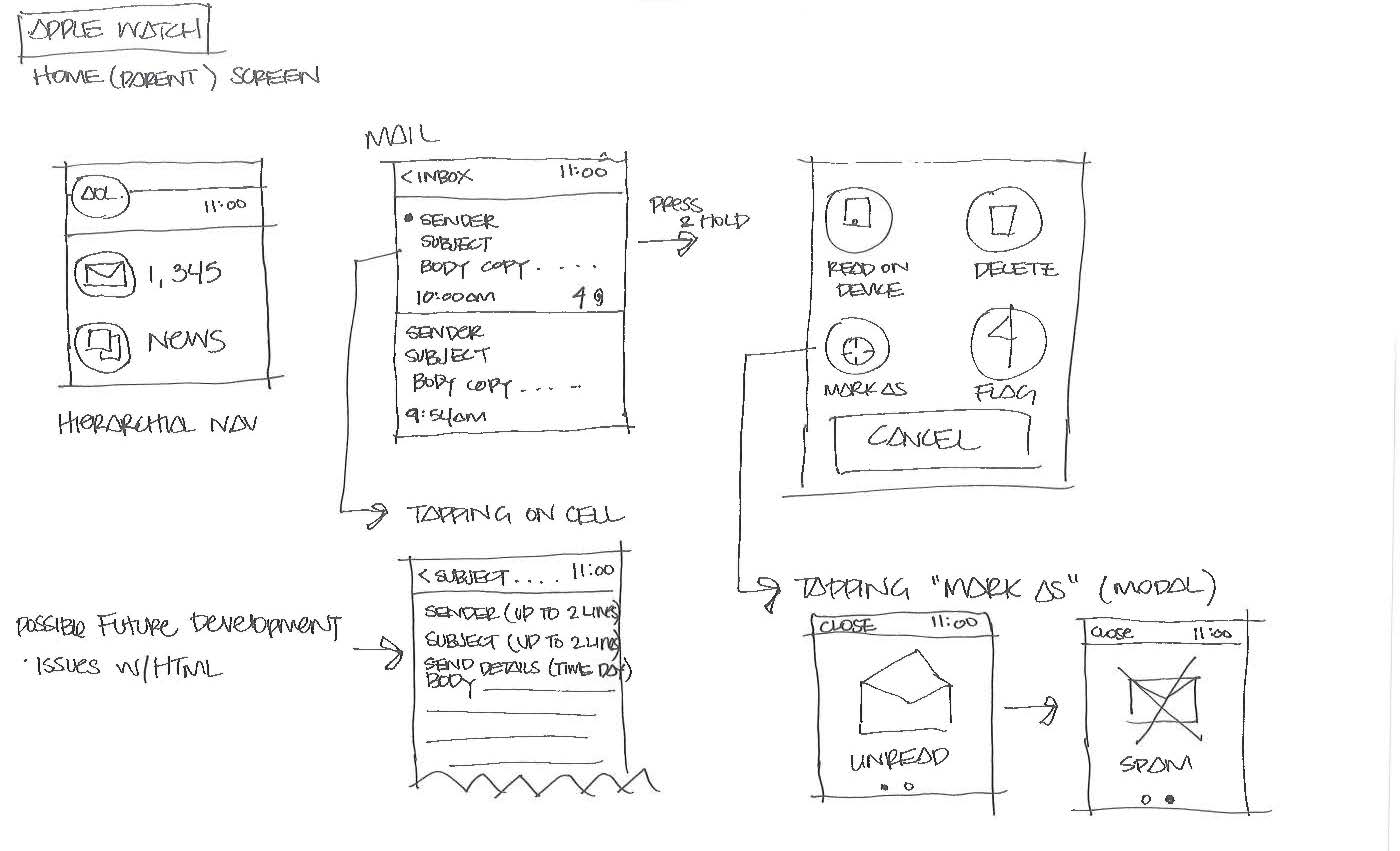 APPLE WATCH
HOME (PARENT) SCREEN
AOL.
11:00
1,345
NEWS
HIERARCHIAL NAV
MAIL
< INBOX 11:00
• SENDER
SUBJECT
BODY COPY . . . . .
10:00AM
SENDER
SUBJECT
BODY COPY . . . . .
9:54AM
PRESS
& HOLD
READ ON
DEVICE
DELETE
MARK AS
FLAG
CANCEL
TAPPING ON CELL
< SUBJECT . . . . 11:00
SENDER (UP TO 2 LINES)
SUBJECT (UP TO 2 LINES)
SEND DETAILS (TIME DAY)
BODY
POSSIBLE FUTURE DEVELOPMENT
· ISSUES W/HTML
TAPPING "MARK AS" (MODAL)
CLOSE 11:00
UNREAD
CLOSE 11:00
SPAM